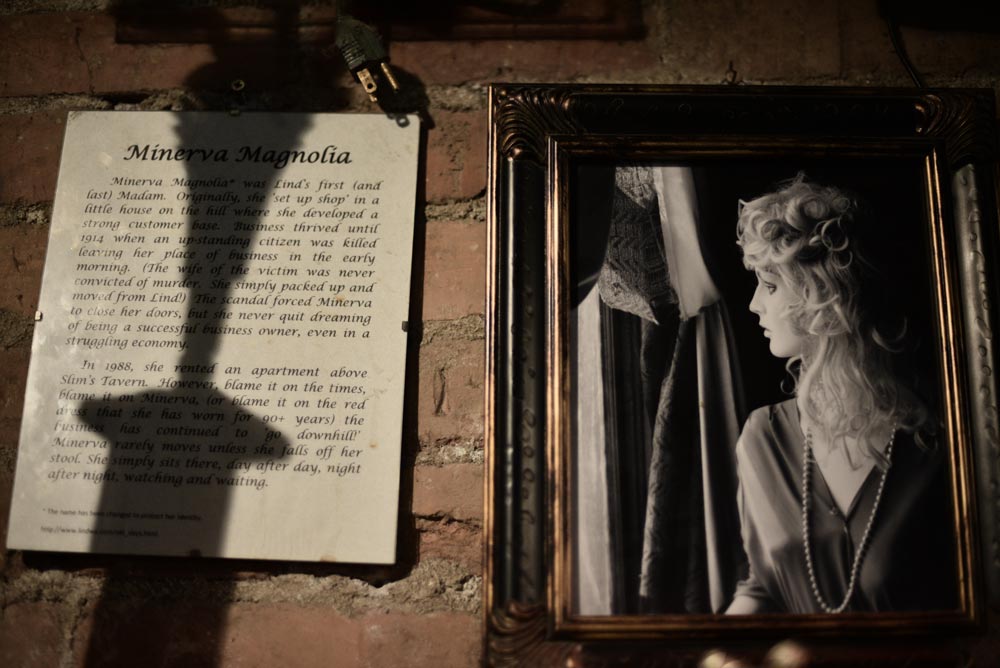 Minerva Magnolia
Minerva Magnolia* was Lind's first (and
last) Madam. Originally, she 'set up shop' in a
little house on the hill where she developed a
strong customer base. Business thrived until
1914 when an up-standing citizen was killed
leaving her place of business in the early
morning. (The wife of the victim was never
convicted of murder. She simply packed up and
moved from Lind!) The scandal forced Minerva
to close her doors, but she never quit dreaming
of being a successful business owner, even in a
struggling economy.
In 1988, she rented an apartment above
Slim's Tavern. However, blame it on the times,
blame it on Minerva, (or blame it on the red
dress that she has worn for 90+ years) the
business has continued to 'go downhill!'
Minerva rarely moves unless she falls off her
stool. She simply sits there, day after day, night
after night, watching and waiting.
* The name has been changed to protect her identity.